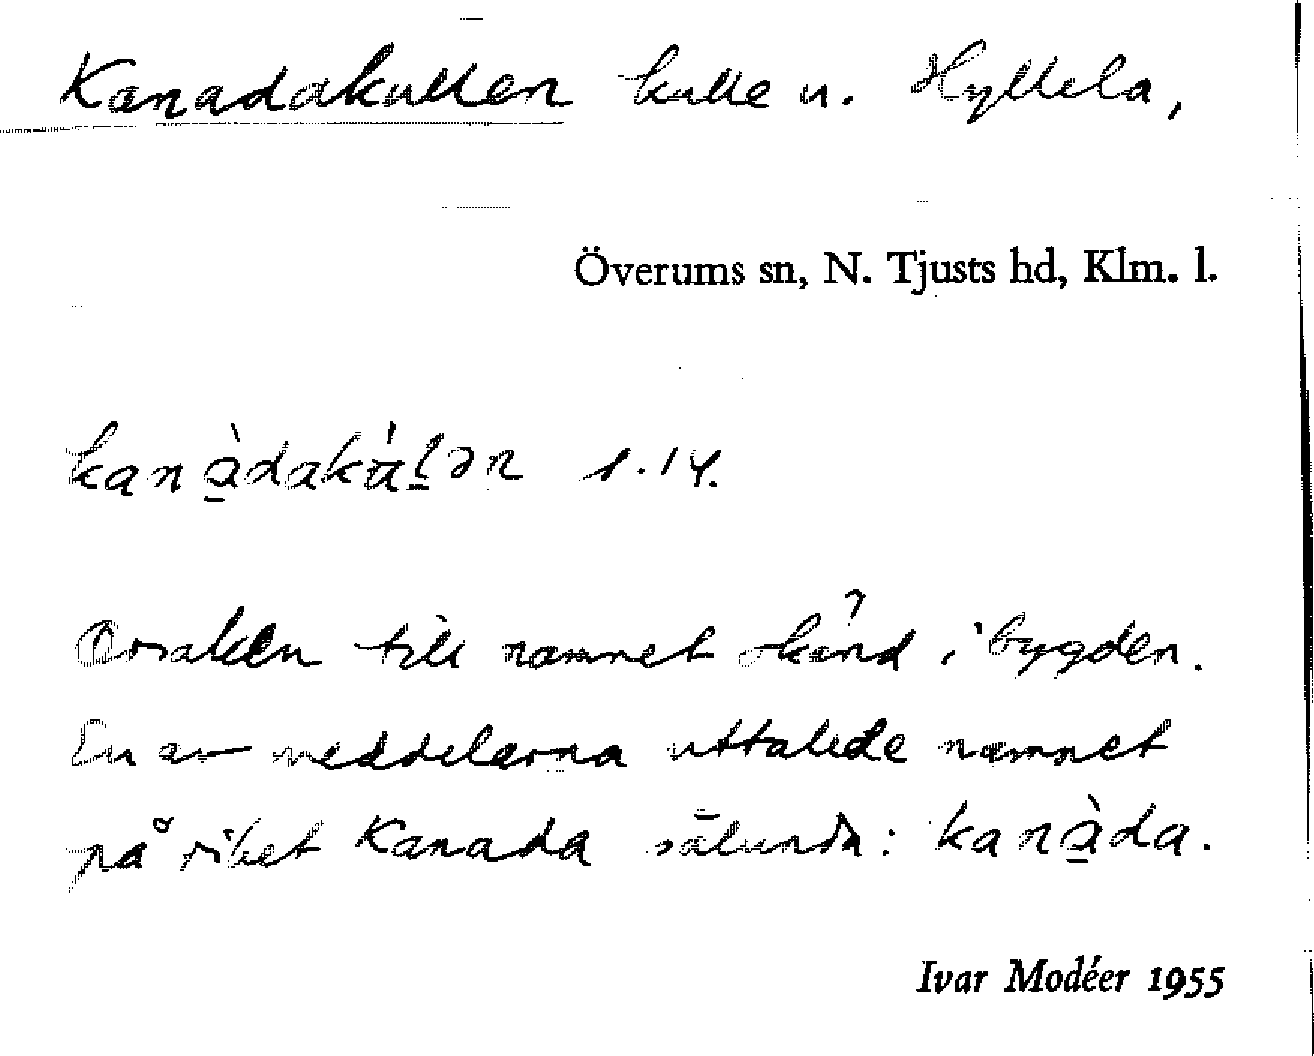 Kanadakullen kulle n. Hyllela,
Överums sn, N. Tjusts hd, Klm. l.
kanàdakúlən 1.14.
Orsaken till namnet okänd i bygden.
En av meddelarna uttalade namnet
på riket Kanada sålunda: kanàda.
Ivar Modéer 1955